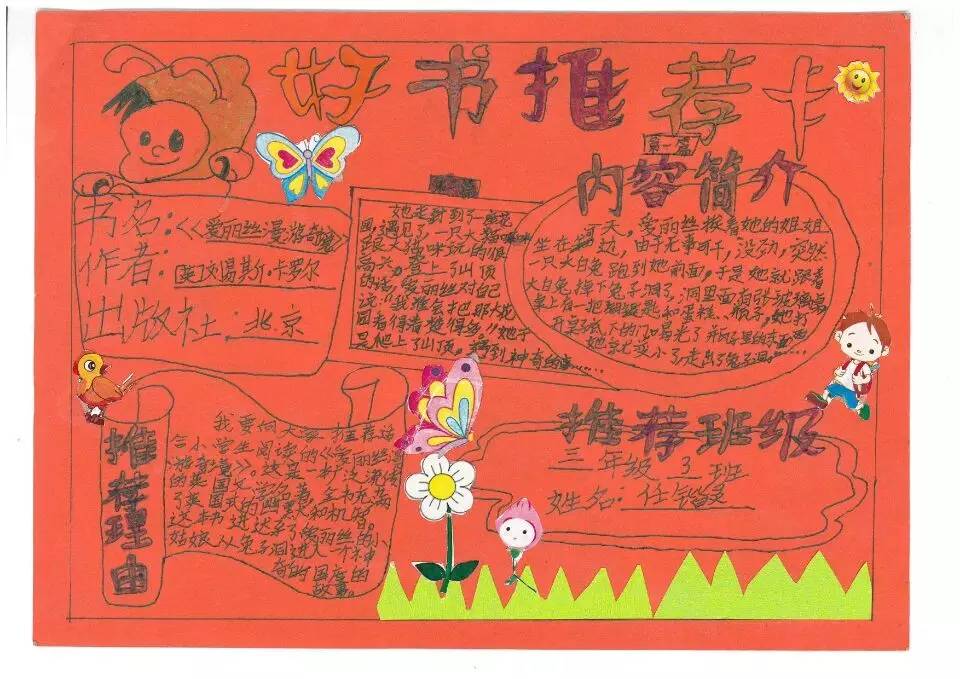 好书推荐卡
书名:《爱丽丝漫游奇境》
作者:英 刘易斯·卡罗尔
出版社:北京
她走到了一座花
园,遇见了一只大猫咪
跟大猫咪玩的很
高兴,登上了山顶
的她,爱丽丝对自己
说:"我准会把那大花
园看得者楚得多"她于
是爬上了山顶,看到神奇的
第一篇
内容简介
河天,爱丽丝挨着她的姐姐
坐在河边,由于无事可干,没劲,突然
一只大白兔跑到她前面,于是她就跟着
大白兔掉下兔子洞了,洞里面有张玻璃桌
桌上有一把 匙和蛋糕、瓶子,她打
开 下的门 光了 瓶子里的东西
她就变小了走出了兔子洞……
推荐理由
我要向大家推荐适
合小学生阅读的《爱丽丝漫
游奇境》。这是一部 流传
的英国文学名著,全书充满
了英国式的幽默和机智。
这本书讲述了爱丽丝的小
姑娘从兔子洞进入一个神
奇的国度的
故事。
推荐班级
三年级 3 班
姓名:任